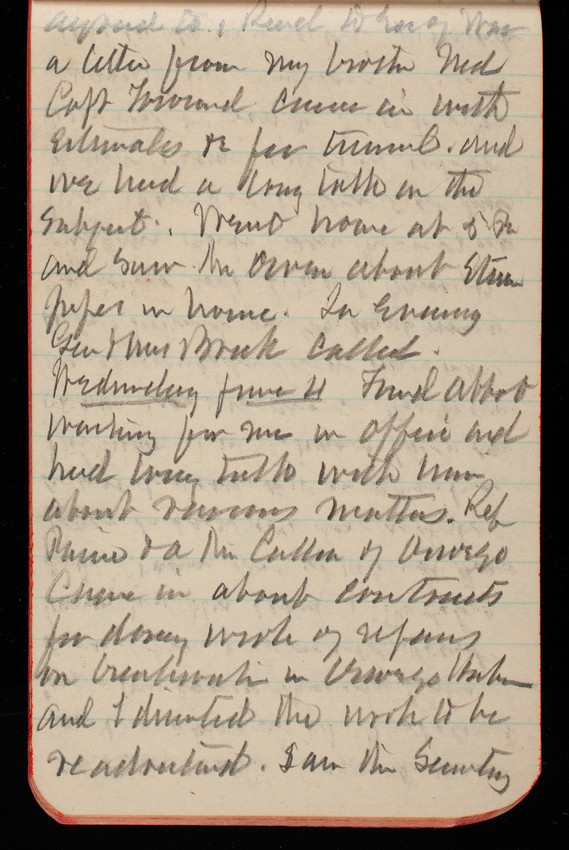 to, Read to Secy War
a letter from my brother Ned
Capt Townsend came in with
Estimates &c for tunnel. and
we had a long talk on the
subject. Went home at 5 Pm
and saw the Owen about Steam
pipes in home. In Evening
Gen & Mrs Breck called.
Wednesday June 4 Found Abbot
waiting for me in office and
had long talk with him
about various matters. Rep
& a Mr Cullen of Oswego
Came in about contracts
for doing work of repairs
on breakwater in Oswego Harbor
and I directed the work to be
readvertised. Saw the Secretary